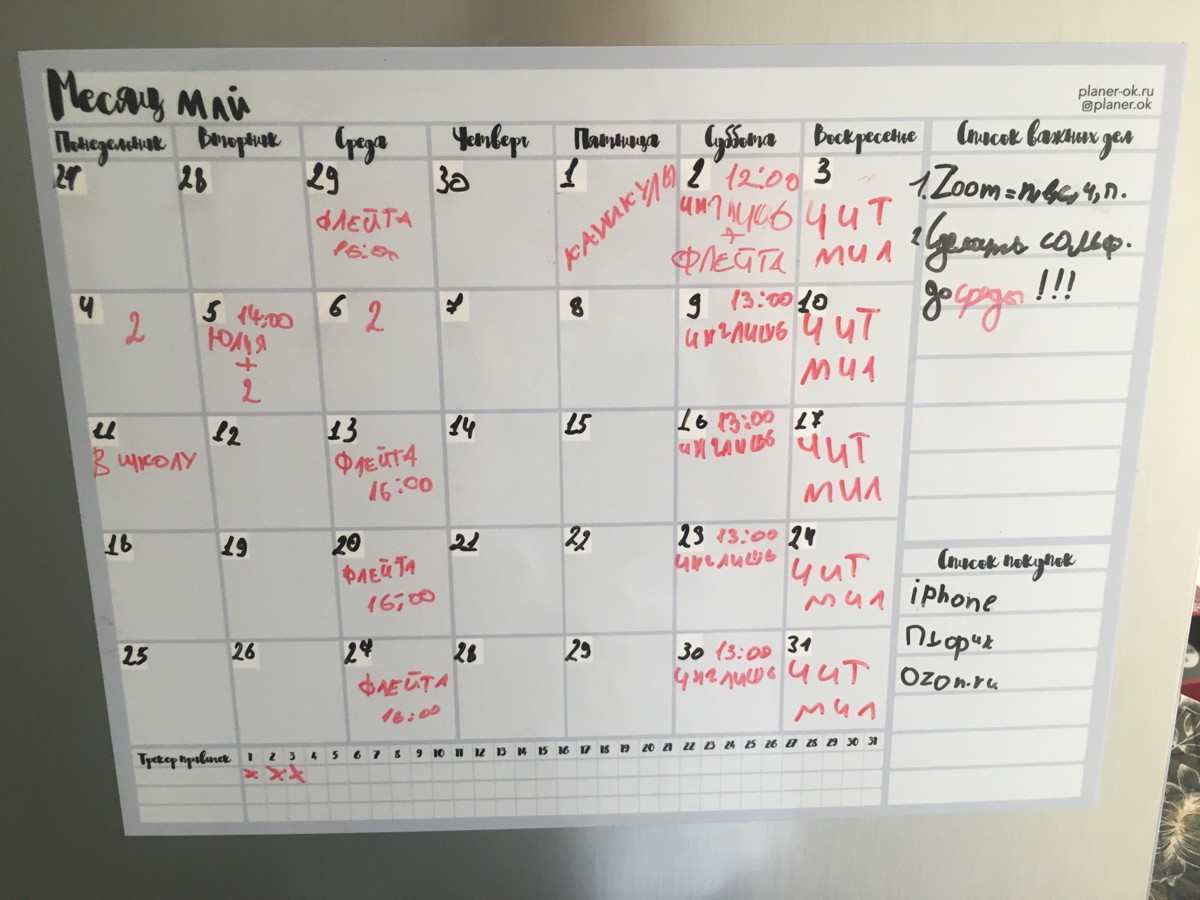 Месяц МАЙ
planer-ok.ru
@planer.ok
Понедельник Вторник Среда Четверг Пятница Суббота Воскресенье
27 28 29 30 1 2 12:00 3
ФЛЕЙТА
КАНИКУЛЫ
+
ФЛЕЙТА
ЧИТ
МИЛ
4 2
5 14:00
ЮЛИЯ
+
2
6 2
7 8
9 13:00
инглишь
10
ЧИТ
МИЛ
11
В ШКОЛУ
12
13
ФЛЕЙТА
16:00
14 15
16 13:00
инглишь
17
ЧИТ
МИЛ
18 19
20
ФЛЕЙТА
16:00
21 22
23 13:00
инглишь
24
ЧИТ
МИЛ
25 26
27
ФЛЕЙТА
16:00
28 29
30 13:00
инглишь
31
ЧИТ
МИЛ
Трекер привычек 1 2 3 4 5 6 7 8 9 10 11 12 13 14 15 16 17 18 19 20 21 22 23 24 25 26 27 28 29 30 31
x x x
Список важных дел
1. Zoom =
2 Сделать сольф.
до среды !!!
Список покупок
iphone
Ozon.ru